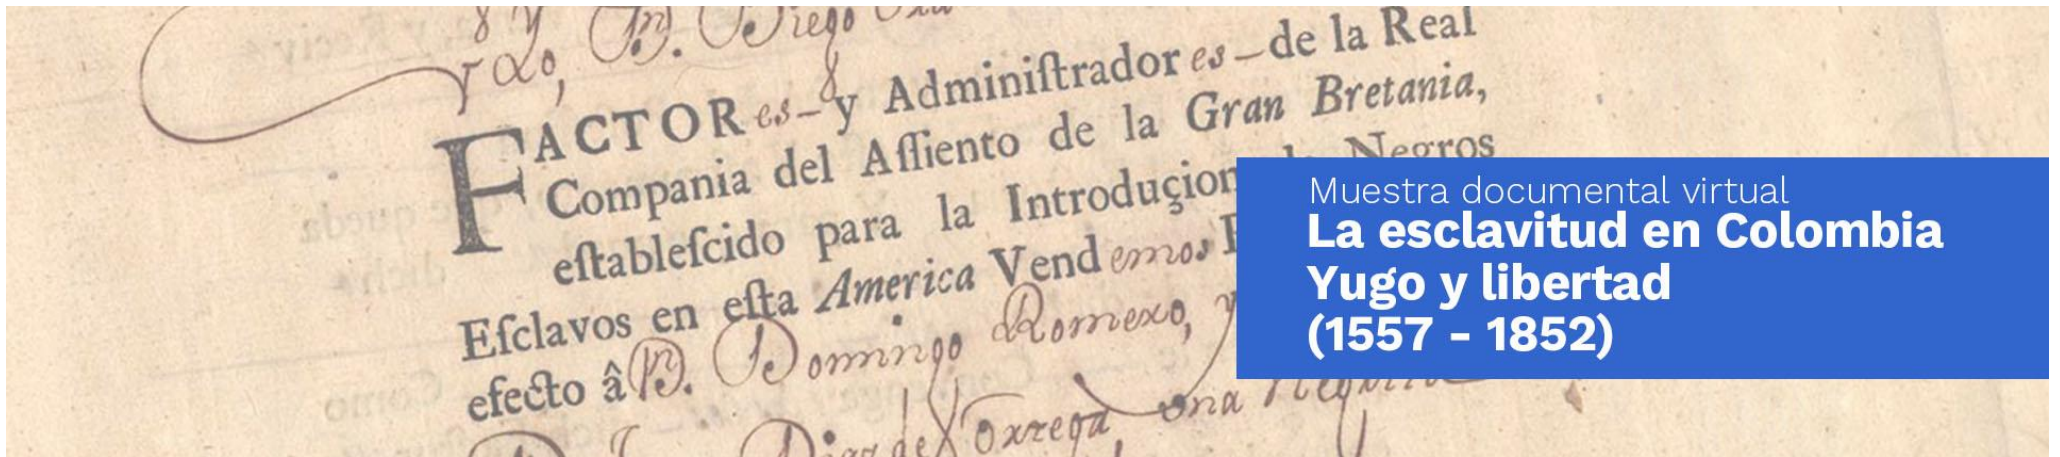 y Lo, Dn. Diego
FACTORes - y Adminiſtradores - de la Real
Compania del Aſſiento de la Gran Bretania,
eſtableſcido para la Introduçion de Negros
Eſclavos en eſta America Vendemos
efecto â Dn. Domingo Romero, y
una Negrita
Muestra documental virtual
La esclavitud en Colombia
Yugo y libertad
(1557 - 1852)